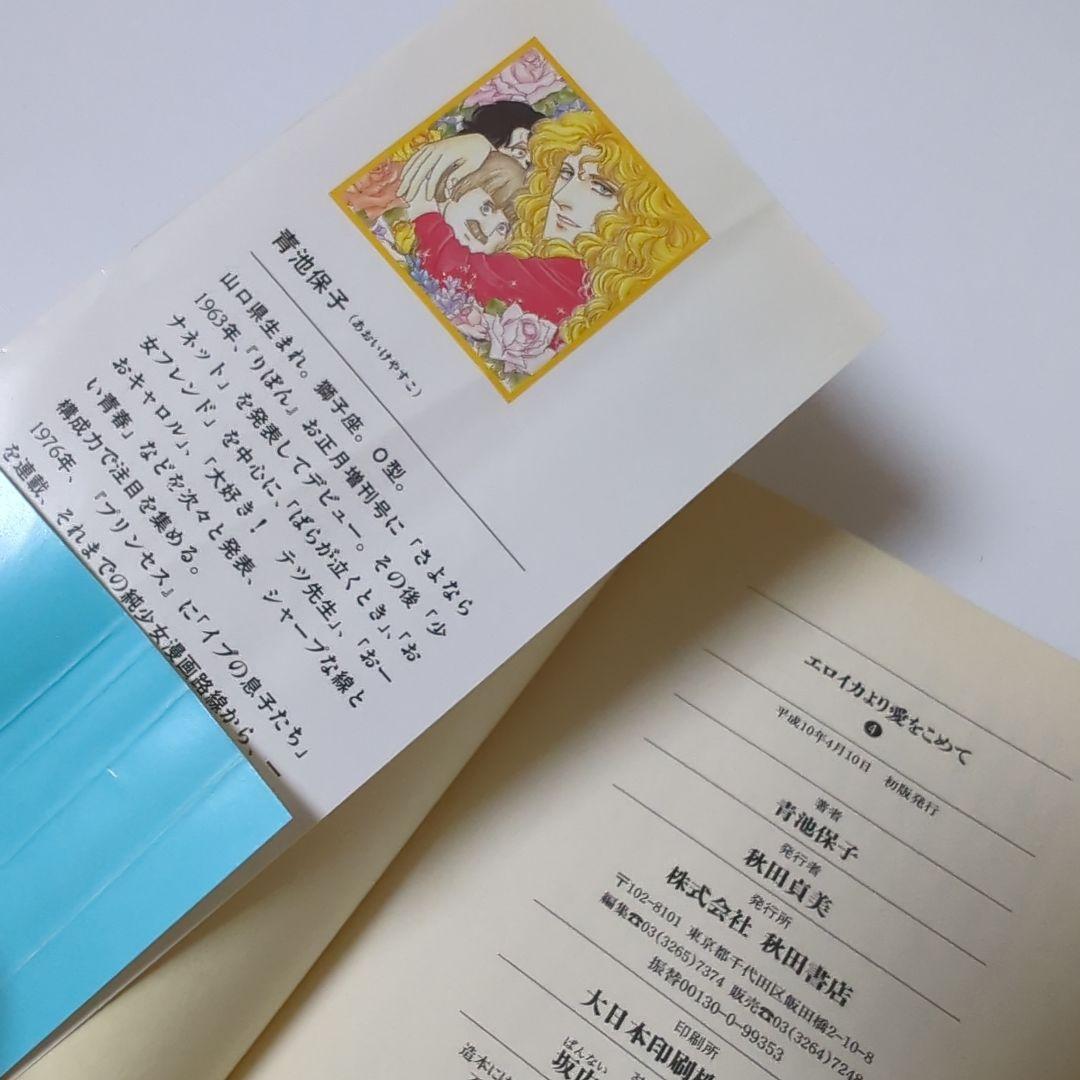 青池保子（あおいけやすこ）
山口県生まれ。獅子座。O型。
1963年、『りぼん』お正月増刊号に「さよなら
ナネット」を発表してデビュー。その後「少
女フレンド」を中心に、「ばらが泣くとき」、「お
おキャロル」、「大好き！　テツ先生」、「おー
い青春」などを次々と発表、シャープな線と
構成力で注目を集める。
1976年、『プリンセス』に「イブの息子たち」
を連載、それまでの純少女漫画路線から、一
エロイカより愛をこめて
❹
平成10年4月10日　初版発行
著者
青池保子
発行者
秋田貞美
発行所
株式会社 秋田書店
〒102-8101 東京都千代田区飯田橋2-10-8
編集☎03(3265)7374 販売☎03(3264)7248
振替00130-0-99353
印刷所
大日本印刷
ばんない
造本には